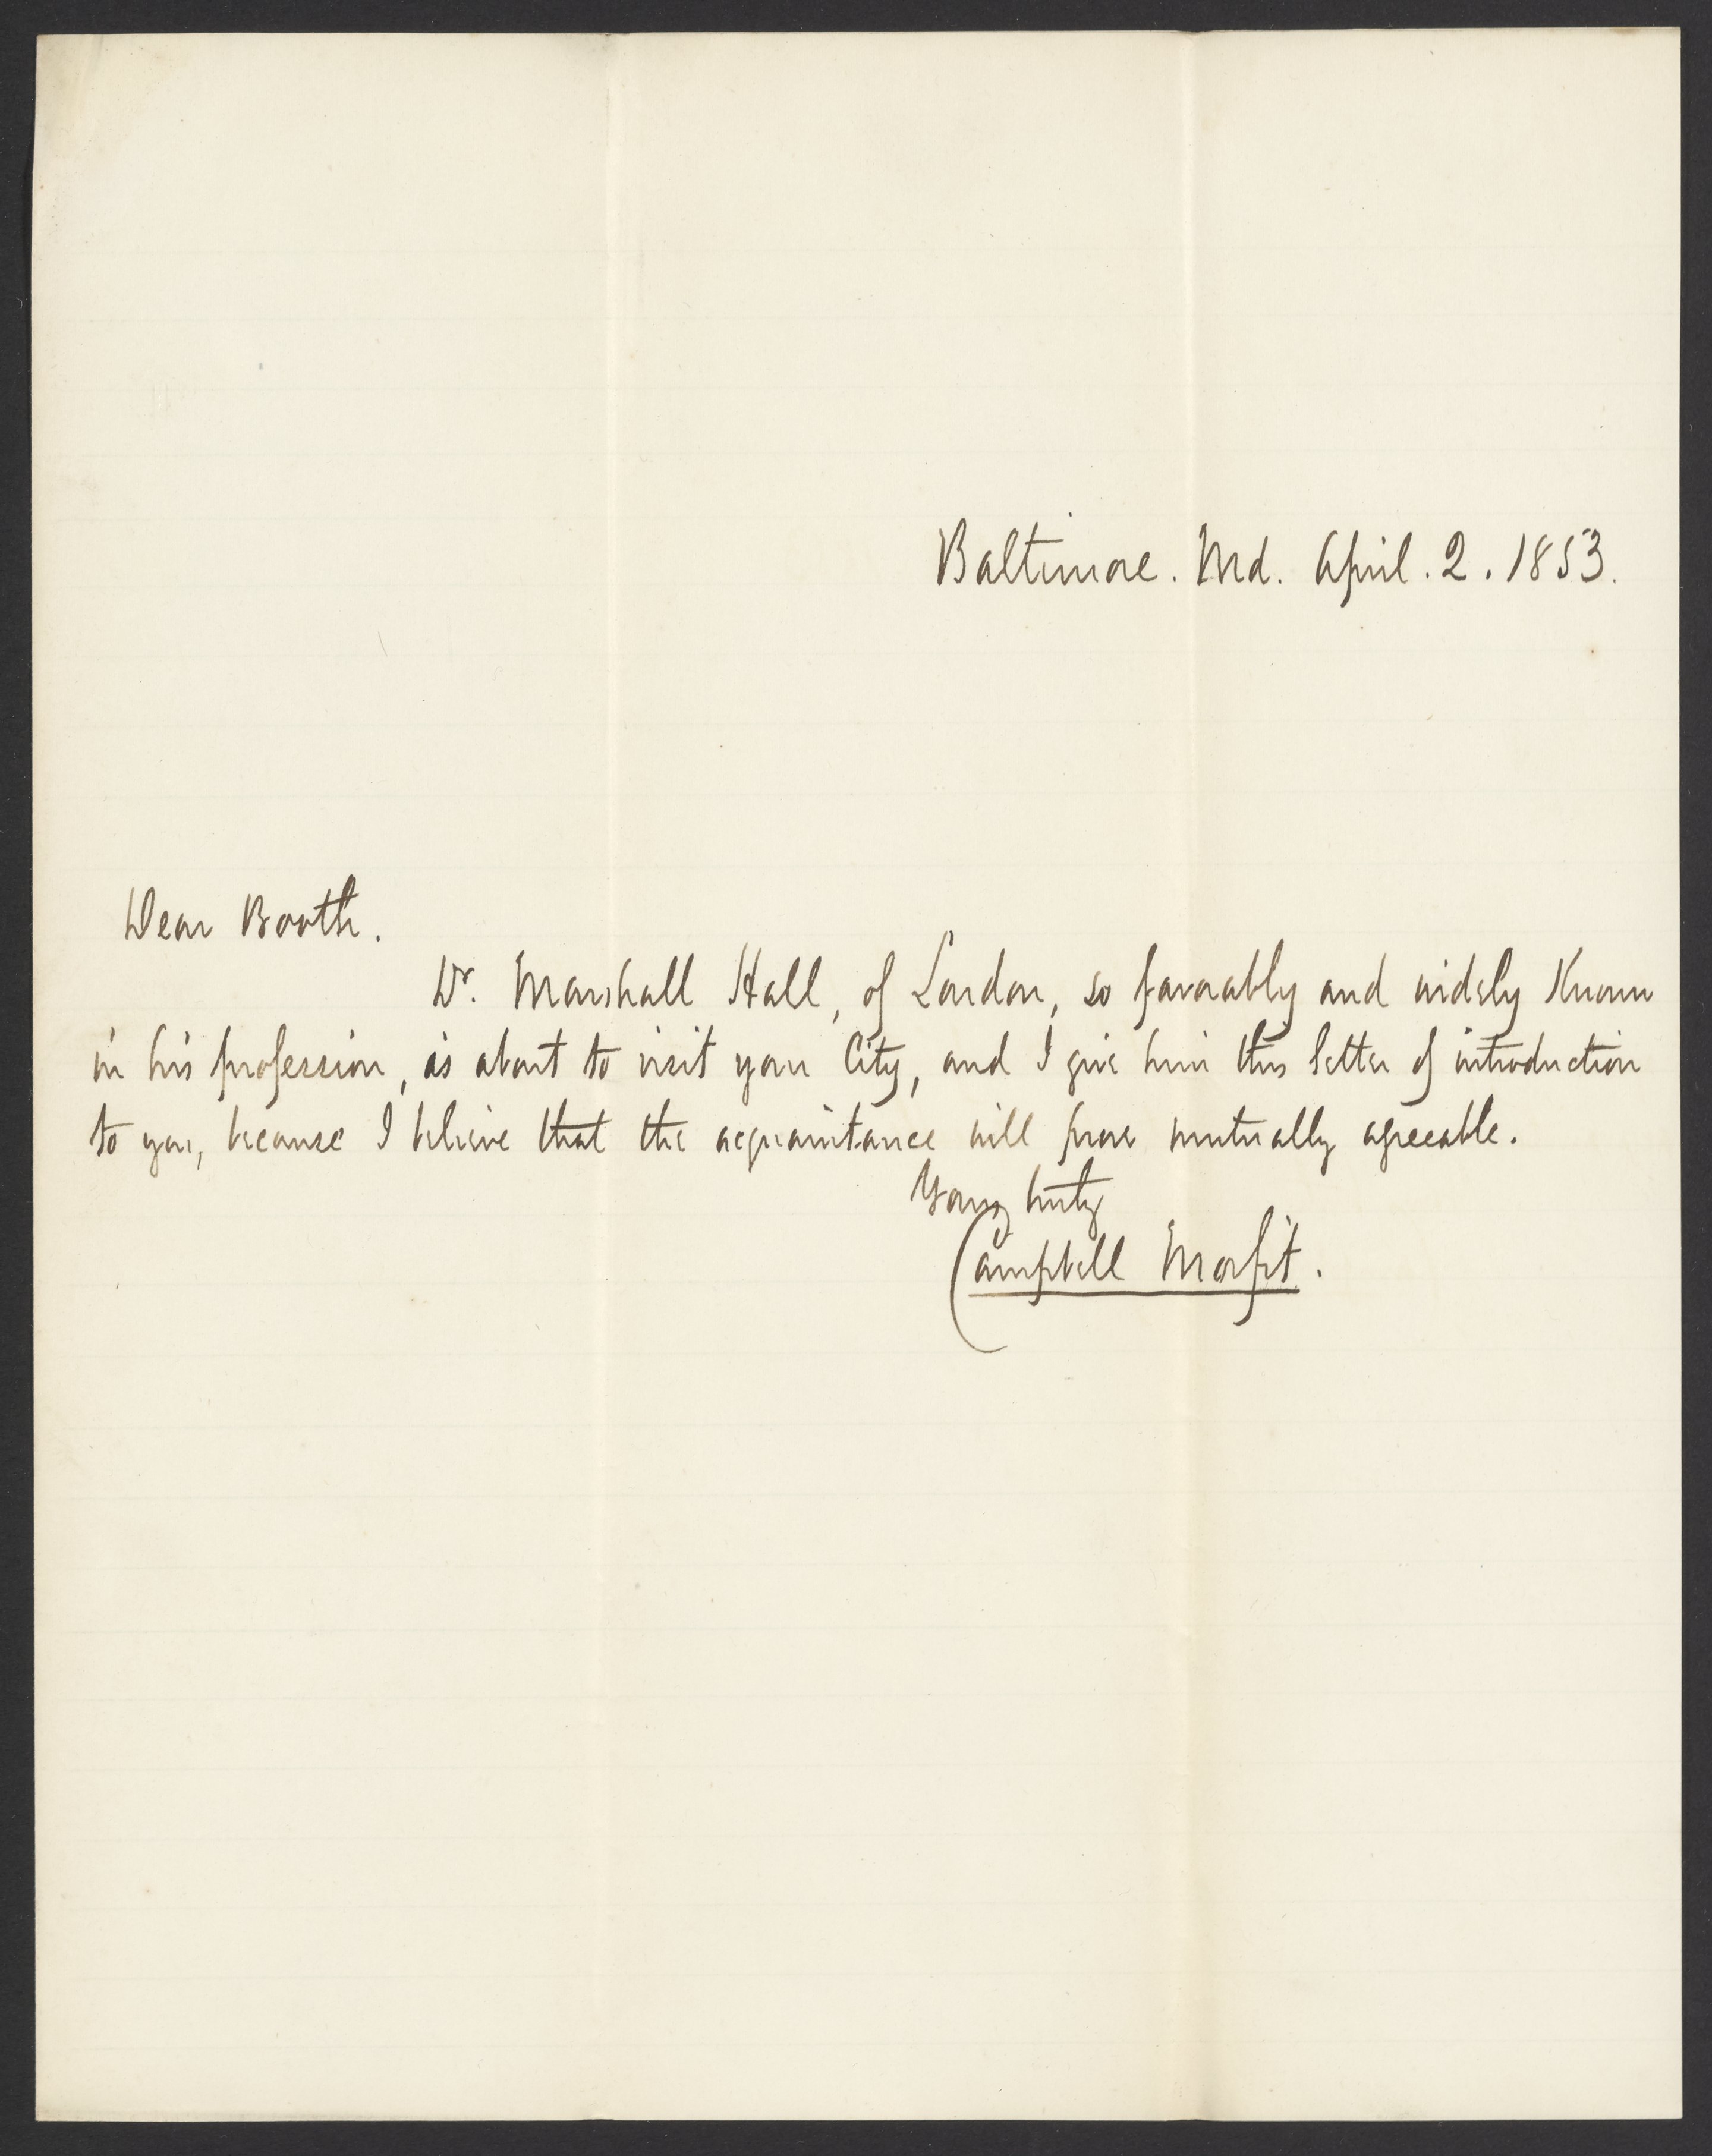 Baltimore. Md. April. 2. 1853.
Dear Booth.
Dr. Marshall Hall, of London, so favorably and widely Known
in his profession, is about to visit your City, and I give him this letter of introduction
to you, because I believe that the acquaintance will prove mutually agreeable.
Yours truly
Campbell Morfit.